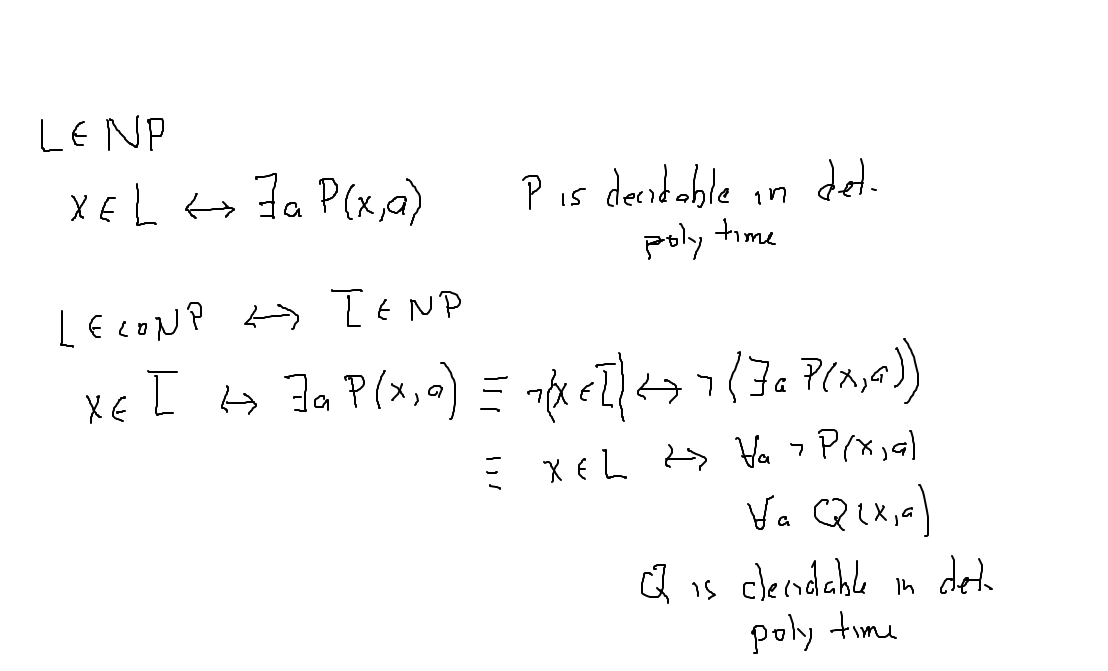 L ∈ NP
x ∈ L ↔ ∃a P(x,a) P is decidable in det.
poly time
L ∈ coNP ↔ L̅ ∈ NP
x ∈ L̅ ↔ ∃a P(x,a) ≡ ¬(x ∈ L̅) ↔ ¬(∃a P(x,a))
≡ x ∈ L ↔ ∀a ¬P(x,a)
∀a Q(x,a)
Q is decidable in det.
poly time